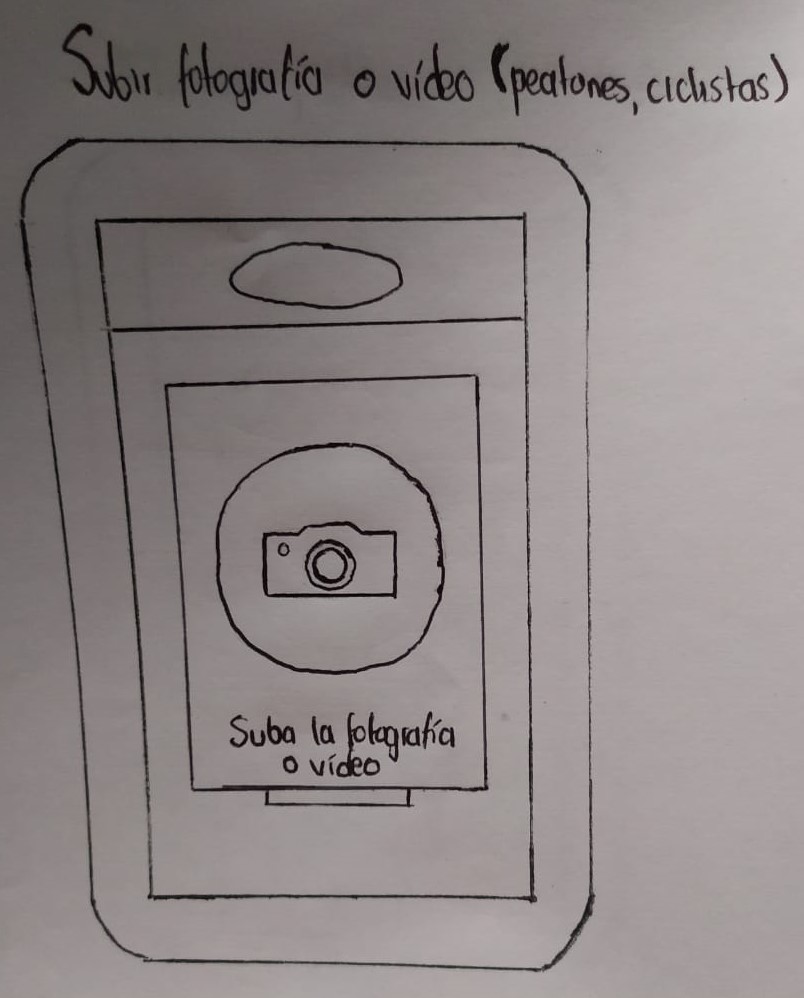 Subir fotografía o vídeo (peatones, ciclistas)
Suba la fotografía
o vídeo